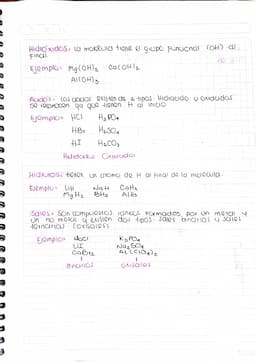 Hidróxidos: la molécula tiene el grupo funcional (OH) al
final.
Ejemplo: Mg(OH)₂ Ca(OH)₂
Al(OH)₃
Acidos: los acidos existen de 2 tipos Hidracido y Oxacidos
se reconocen ya que tienen H al inicio
Ejemplo: HCl H₃PO₄
HBr H₂SO₄
HI H₂CO₃
Hidracidos Oxacidos
Hidruros: tienen un atomo de H al final de la molecula.
Ejemplo: LiH NaH CaH₂
MgH₂ BH₃ AlH₃
Sales: son compuestos ionicos formados por un metal y
un no metal y existen dos tipos: sales binarias y sales
ternarias (oxisales)
Ejemplo: NaCl K₃PO₄
LiI Na₂SO₄
CaBr₂ Al(ClO₄)₃
Binarias Oxisales